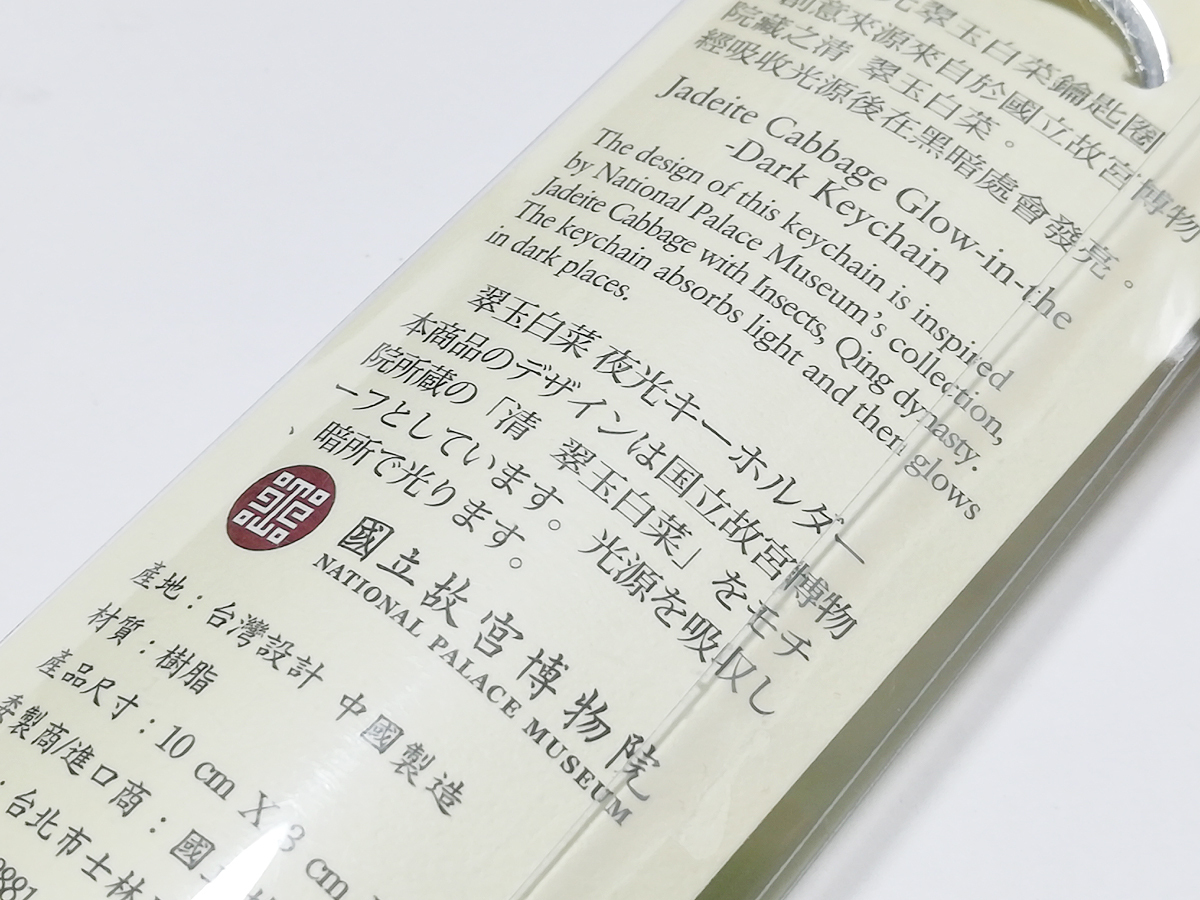 光翠玉白菜鑰匙圈
創意來源來自於國立故宮博物
院藏之清 翠玉白菜。
經吸收光源後在黑暗處會發亮。
Jadeite Cabbage Glow-in-the
-Dark Keychain
The design of this keychain is inspired
by National Palace Museum's collection,
Jadeite Cabbage with Insects, Qing dynasty.
The keychain absorbs light and then glows
in dark places.
翠玉白菜 夜光キーホルダー
本商品のデザインは国立故宮博物
院所蔵の「清 翠玉白菜」をモチ
ーフとしています。光源を吸収し
、暗所で光ります。
國立故宮博物院
NATIONAL PALACE MUSEUM
產地：台灣設計 中國製造
材質：樹脂
產品尺寸：10 cm X 3 cm
委製商/進口商：國
：台北市士林
2881